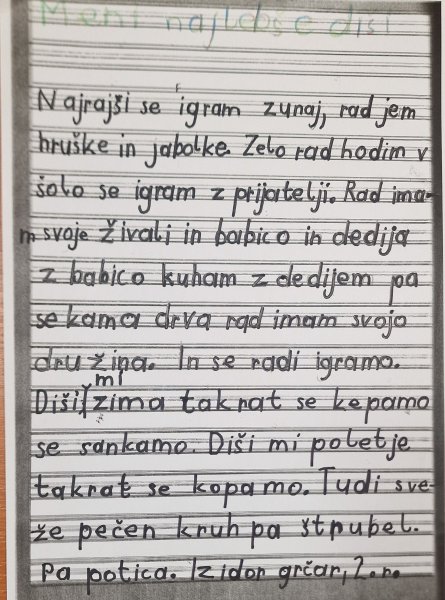 Meni najlebše diši
Najrajši se igram zunaj, rad jem
hruške in jabolke. Zelo rad hodim v
šolo se igram z prijatelji. Rad ima-
m svoje živali in babico in dedija
z babico kuham z dedijem pa
sekama drva rad imam svojo
družina. In se radi igramo.
Diši mi zima takrat se kepamo
se sankamo. Diši mi poletje
takrat se kopamo. Tudi sve-
že pečen kruh pa štrubel.
Pa potica. Izidor grčar, 2. r.